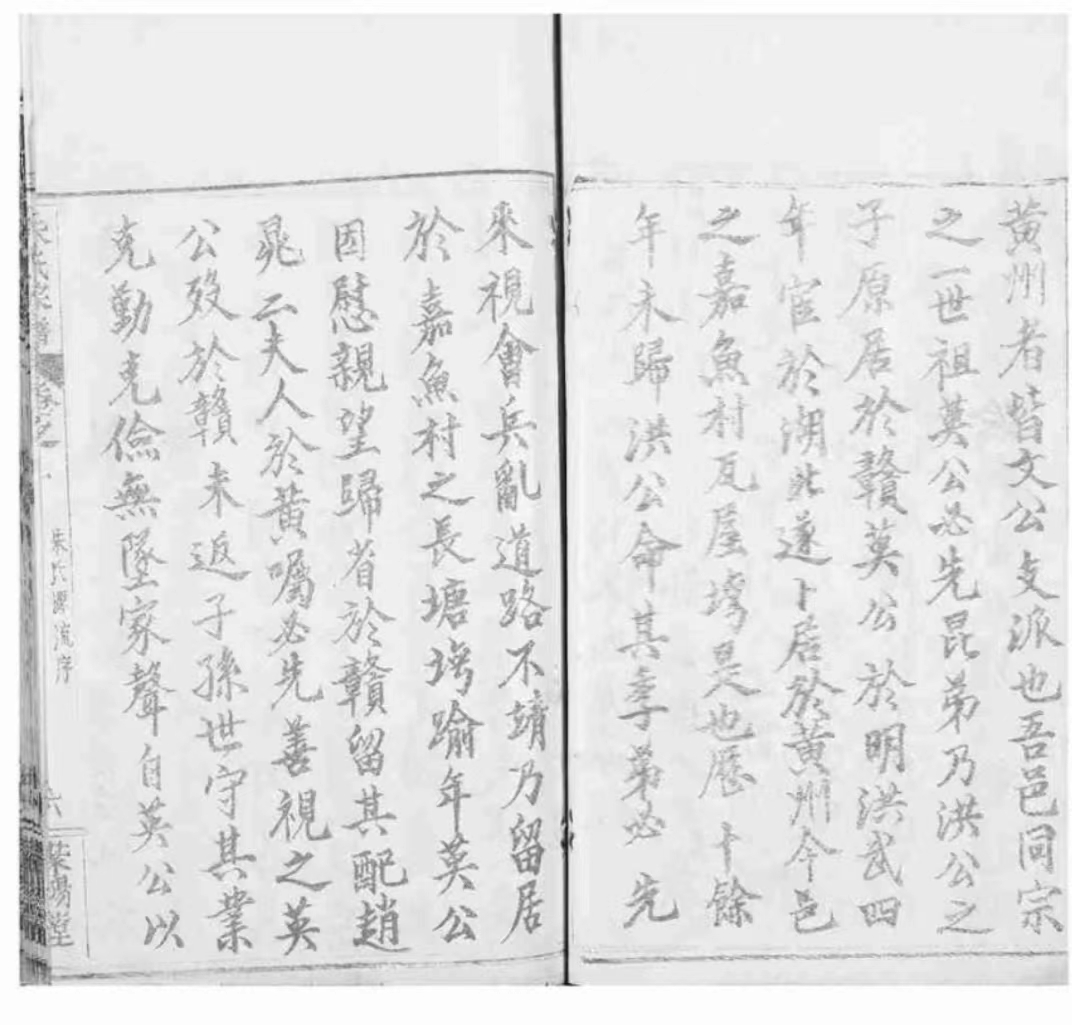 黄州者皆文公支派也吾邑同宗
之一世祖英公必先昆弟乃洪公之
子原居於贛英公於明洪武四
年宦於湖北遂卜居於黄州今邑
之嘉魚村瓦屋塆是也歷十餘
年未歸洪公命其季弟必先
來視會兵亂道路不靖乃留居
於嘉魚村之長塘塆踰年英公
因慰親望歸省於贛留其配趙
晁二夫人於黄囑必先善視之英
公歿於贛未返子孫世守其業
克勤克儉無墜家聲自英公以
朱氏家譜
卷之一
朱氏源流序
六